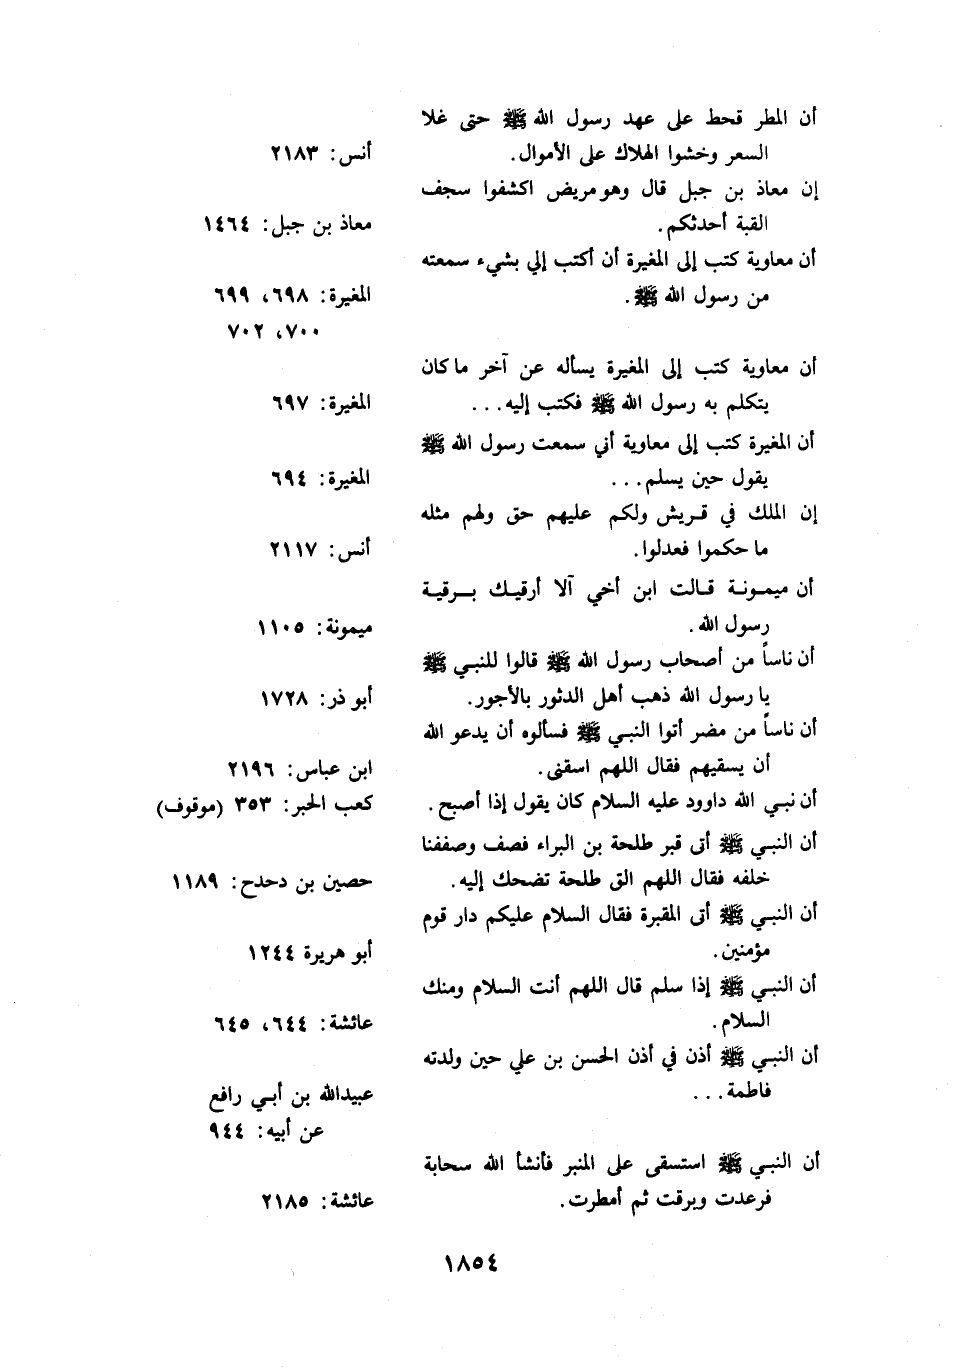 أن المطر قحط على عهد رسول الله ﷺ حتى غلا
السعر وخشوا الهلاك على الأموال. أنس: ٢١٨٣
إن معاذ بن جبل قال وهو مريض اكشفوا سجف
القبة أحدثكم. معاذ بن جبل: ١٤٦٤
أن معاوية كتب إلى المغيرة أن أكتب إلي بشيء سمعته
من رسول الله ﷺ. المغيرة: ٦٩٨، ٦٩٩
٧٠٠، ٧٠٢
أن معاوية كتب إلى المغيرة يسأله عن آخر ما كان
يتكلم به رسول الله ﷺ فكتب إليه... المغيرة: ٦٩٧
أن المغيرة كتب إلى معاوية أني سمعت رسول الله ﷺ
يقول حين يسلم... المغيرة: ٦٩٤
إن الملك في قريش ولكم عليهم حق ولهم مثله
ما حكموا فعدلوا. أنس: ٢١١٧
أن ميمونة قالت ابن أخي آلا أرقيك برقية
رسول الله. ميمونة: ١١٠٥
أن ناساً من أصحاب رسول الله ﷺ قالوا للنبي ﷺ
يا رسول الله ذهب أهل الدثور بالأجور. أبو ذر: ١٧٢٨
أن ناساً من مضر أتوا النبي ﷺ فسألوه أن يدعو الله
أن يسقيهم فقال اللهم اسقنى. ابن عباس: ٢١٩٦
أن نبي الله داوود عليه السلام كان يقول إذا أصبح. كعب الحبر: ٣٥٣ (موقوف)
أن النبي ﷺ أتى قبر طلحة بن البراء فصف وصففنا
خلفه فقال اللهم الق طلحة تضحك إليه. حصين بن دحدح: ١١٨٩
أن النبي ﷺ أتى المقبرة فقال السلام عليكم دار قوم
مؤمنين. أبو هريرة ١٢٤٤
أن النبي ﷺ إذا سلم قال اللهم أنت السلام ومنك
السلام. عائشة: ٦٤٤، ٦٤٥
أن النبي ﷺ أذن في أذن الحسن بن علي حين ولدته
فاطمة... عبيدالله بن أبي رافع
عن أبيه: ٩٤٤
أن النبي ﷺ استسقى على المنبر فأنشأ الله سحابة
فرعدت وبرقت ثم أمطرت. عائشة: ٢١٨٥
١٨٥٤